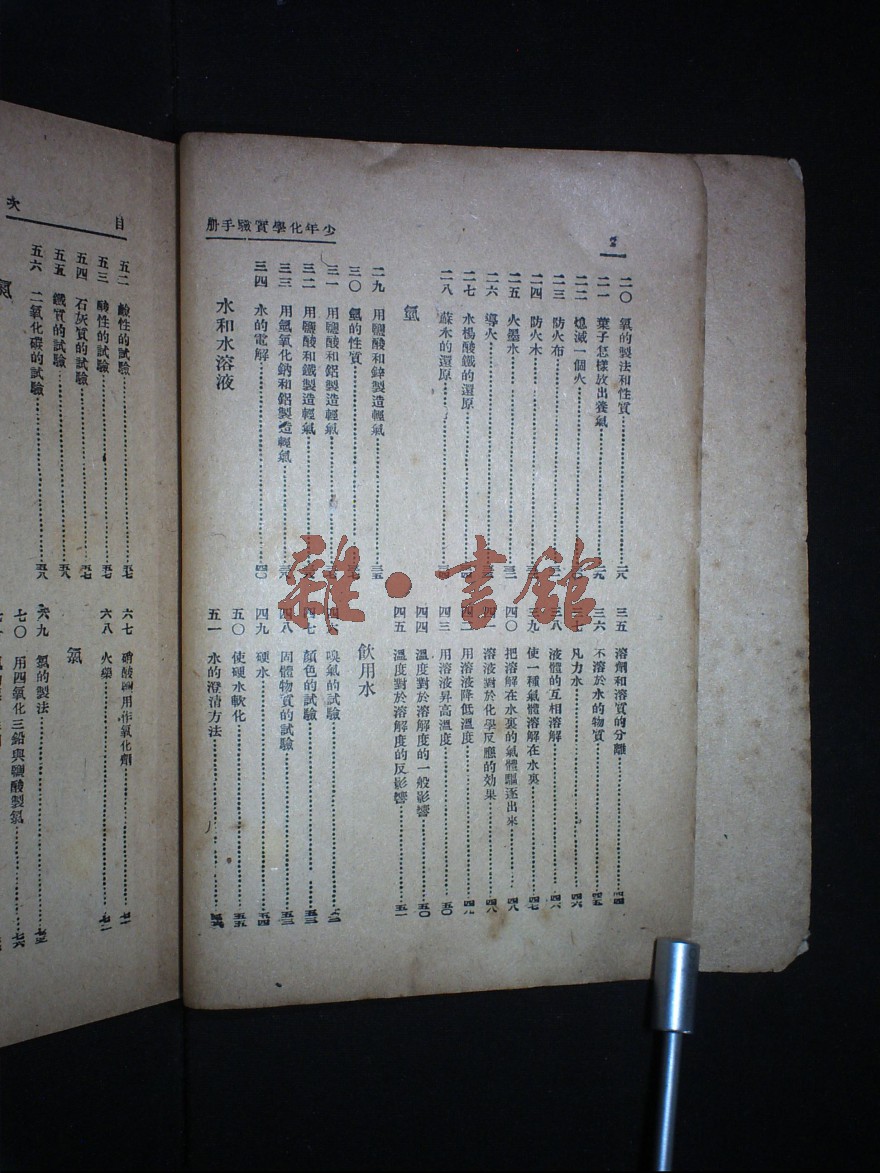 少年化學實驗手册
二〇 氧的製法和性質 二八
二一 葉子怎樣放出養氣 二九
二二 熄滅一個火
二三 防火布
二四 防火木
二五 火墨水
二六 導火
二七 水楊酸鐵的還原
二八 蘇木的還原
氫
二九 用鹽酸和鋅製造輕氣 三五
三〇 氫的性質
三一 用鹽酸和鋁製造輕氣
三二 用鹽酸和鐵製造輕氣
三三 用氫氧化鈉和鋁製造輕氣
三四 水的電解 四〇
水和水溶液
三五 溶劑和溶質的分離 四四
三六 不溶於水的物質 四五
三七 凡力水 四六
三八 液體的互相溶解 四六
三九 使一種氣體溶解在水裏 四七
四〇 把溶解在水裏的氣體驅逐出來 四八
四一 溶液對於化學反應的効果 四八
四二 用溶液降低溫度 四九
四三 用溶液昇高溫度 五〇
四四 溫度對於溶解度的一般影響 五〇
四五 溫度對於溶解度的反影響 五一
飲用水
四六 嗅氣的試驗
四七 顏色的試驗 五三
四八 固體物質的試驗 五三
四九 硬水 五四
五〇 使硬水軟化 五五
五一 水的澄清方法
目 次
五二 鹼性的試驗 五七
五三 酸性的試驗 五七
五四 石灰質的試驗 五七
五五 鐵質的試驗 五八
五六 二氧化碳的試驗 五八
氮
六七 硝酸鹽用作氧化劑 七一
六八 火藥 七二
氯
六九 氯的製法 七三
七〇 用四氧化三鉛與鹽酸製氯 七六
雜·書館